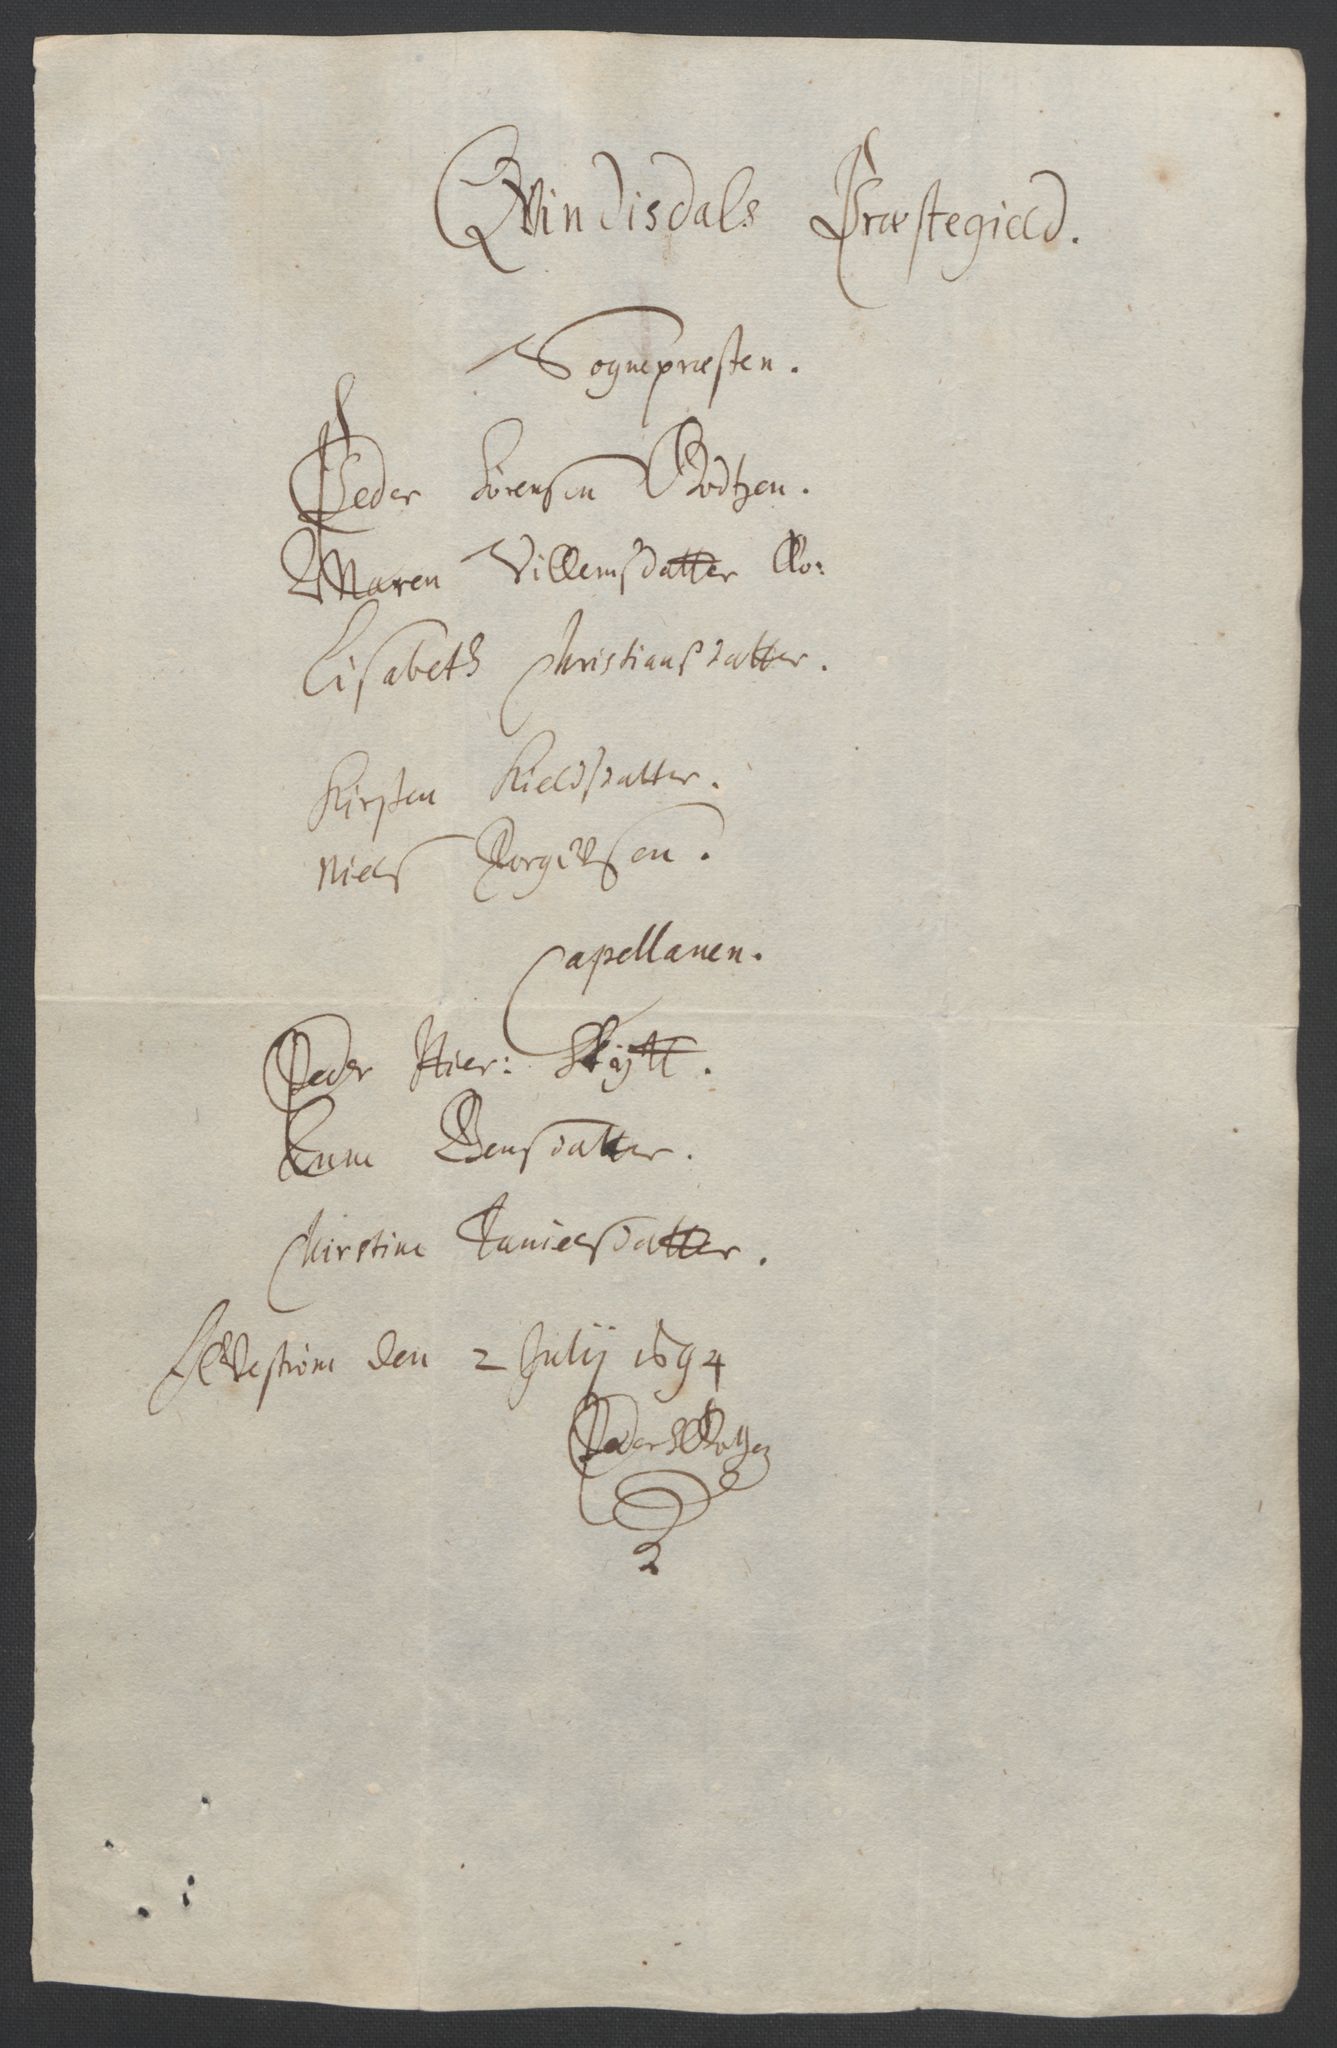 Qvindisdals Præstegield.
Sognepræsten.
Peder Sørensen Godtzen.
Maren Villemsdatter
Lisabeth Christiansdatter.
Kirsten Kieldsdatter.
Niels Torgersen.
Capellanen.
Peder Hier: Skytt.
Anne Bensdatter.
Chirstine Danielsdatter.
den 2 Julij 1694
Peder